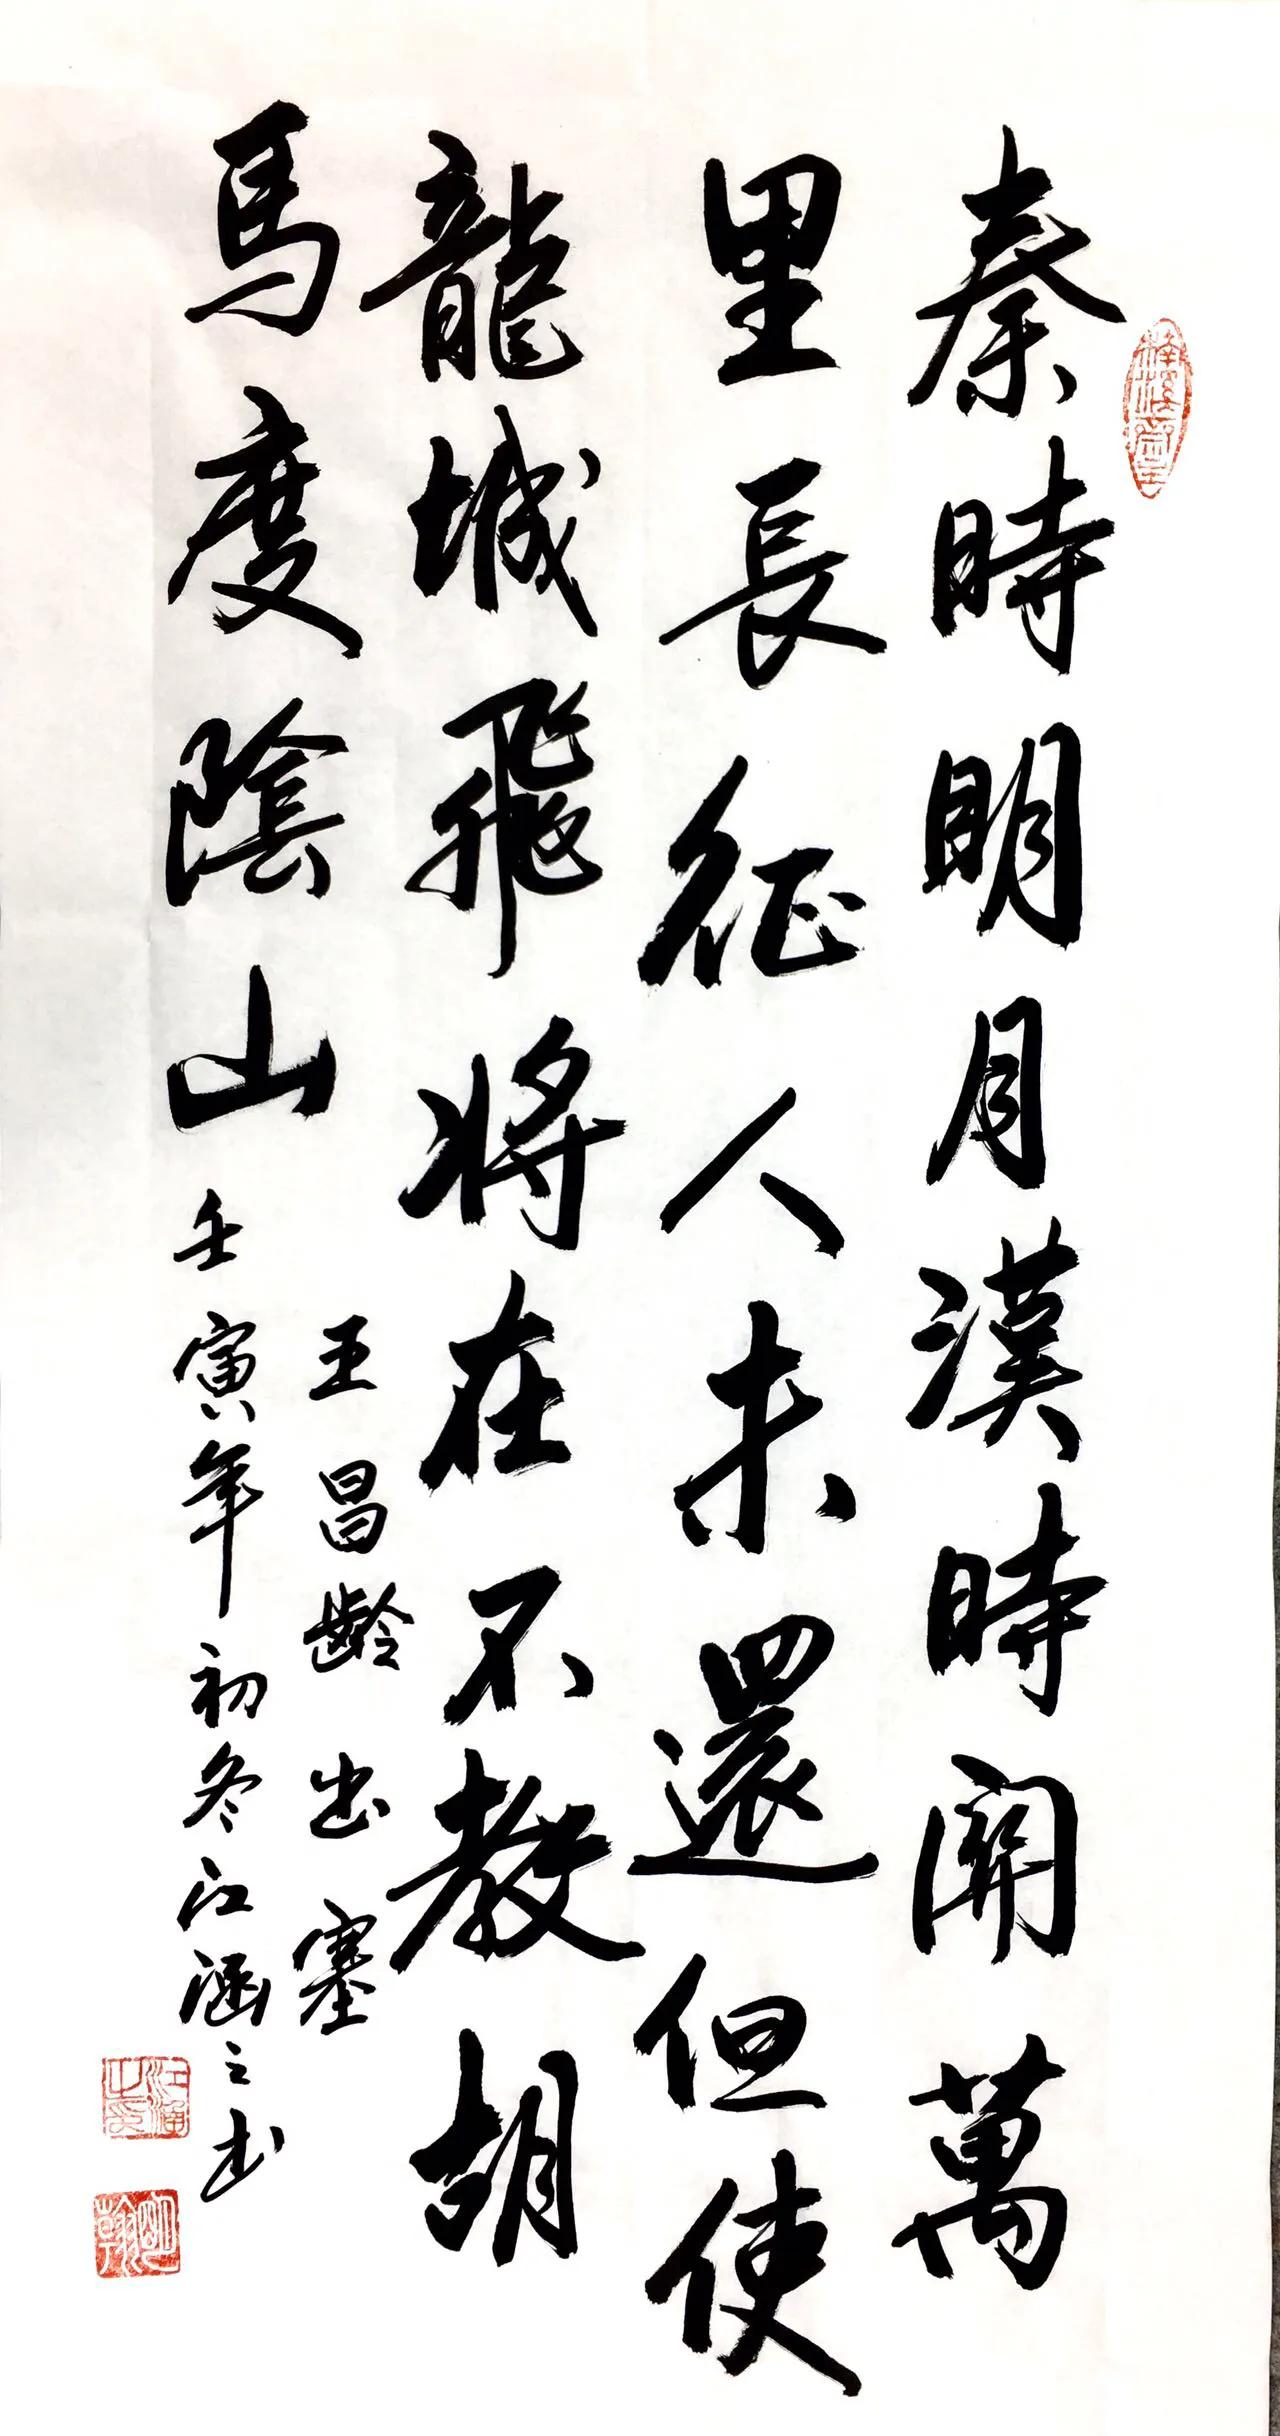 秦時明月漢時關萬
里長征人未還但使
龍城飛將在不教胡
馬度陰山
王昌齡出塞
壬寅年初冬江涵之書
江涵之印